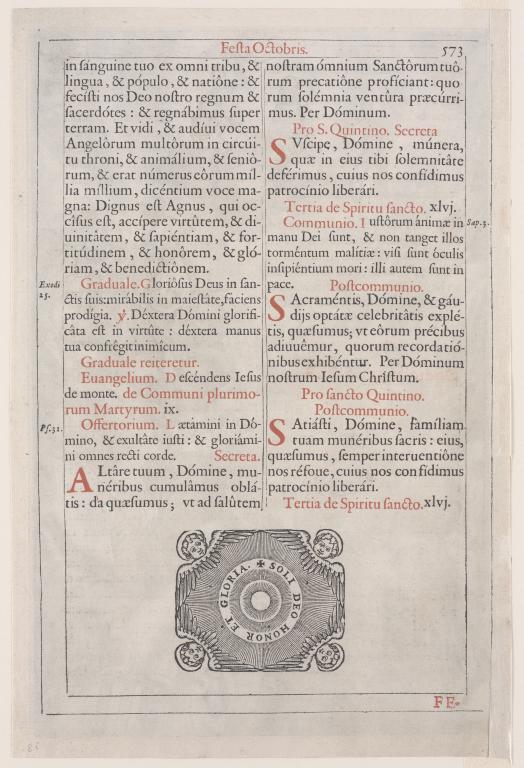 Festa Octobris.
573
in sanguine tuo ex omni tribu, &
lingua, & pópulo, & natiône: &
fecísti nos Deo nostro regnum &
sacerdótes: & regnábimus super
terram. Et vidi, & audíui vocem
Angelôrum multôrum in circúi-
tu throni, & animálium, & seniò-
rum, & erat númerus eôrum míl-
lia míllium, dicéntium voce ma-
gna: Dignus est Agnus, qui oc-
cîsus est, accípere virtûtem, & di-
uinitâtem, & sapiéntiam, & for-
titúdinem, & honôrem, & gló-
riam, & benedictiônem.
Exodi
15.
Graduale. Gloriôsus Deus in san-
ctis suis: mirábilis in maiestâte, faciens
prodígia. ℣. Déxtera Dómini glorifi-
câta est in virtûte: déxtera manus
tua confrêgit inimîcum.
Graduale reiteretur.
Euangelium. Descéndens Iesus
de monte. de Communi plurimo-
rum Martyrum. ix.
Ps. 31.
Offertorium. Lætámini in Dó-
mino, & exultâte iusti: & gloriámi-
ni omnes recti corde. Secreta.
Altâre tuum, Dómine, mu-
néribus cumulâmus oblâ-
tis: da quæsumus; vt ad salûtem
nostram ómnium Sanctôrum tuô-
rum precatiône profíciant: quo
rum solémnia ventûra præcúrri-
mus. Per Dóminum.
Pro S. Quintino. Secreta
Svscipe, Dómine, múnera,
quæ in eius tibi solemnitâte
deférimus, cuius nos confídimus
patrocínio liberári.
Tertia de Spiritu sancto. xlvj.
Communio. Iustôrum ánimæ in
Sap. 3.
manu Dei sunt, & non tanget illos
torméntum malítiæ: visi sunt óculis
insipiéntium mori: illi autem sunt in
pace. Postcommunio.
Sacraméntis, Dómine, & gáu-
dijs optâtæ celebritâtis explé-
tis, quæsumus; vt eôrum précibus
adiuuêmur, quorum recordatió-
nibus exhibéntur. Per Dóminum
nostrum Iesum Christum.
Pro sancto Quintino.
Postcommunio.
Satiásti, Dómine, famíliam
tuam munéribus sacris: eius,
quæsumus, semper interuentiône
nos réfoue, cuius nos confídimus
patrocínio liberári.
Tertia de Spiritu sancto. xlvj.
✠ SOLI DEO HONOR ET GLORIA.